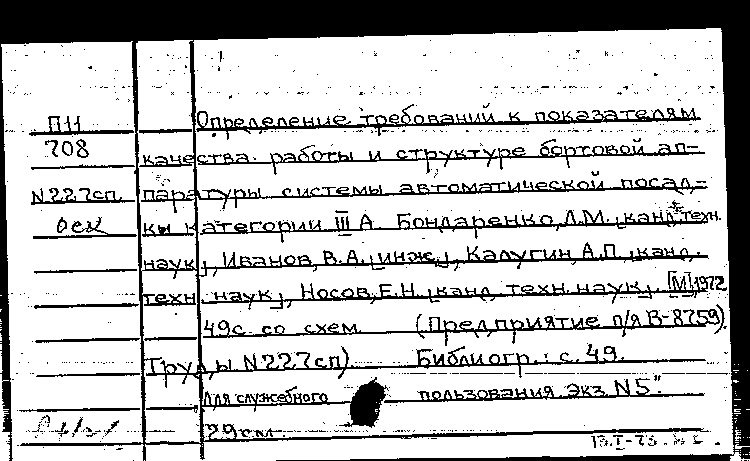 П11
708
N227сп.
осн
Определение требований к показателям
качества работы и структуре бортовой ап-
паратуры системы автоматической посад-
ки категории III А. Бондаренко, Л.М. [канд. техн.
наук], Иванов, В.А. [инж.], Калугин, А.П. [канд.
техн. наук], Носов, Е.Н. [канд. техн. наук]. [М] 1972
49с со схем (Предприятие п/я В-8759).
Труды N227сп) Библиогр.: с. 49.
Для служебного пользования Экз N5"
29см.